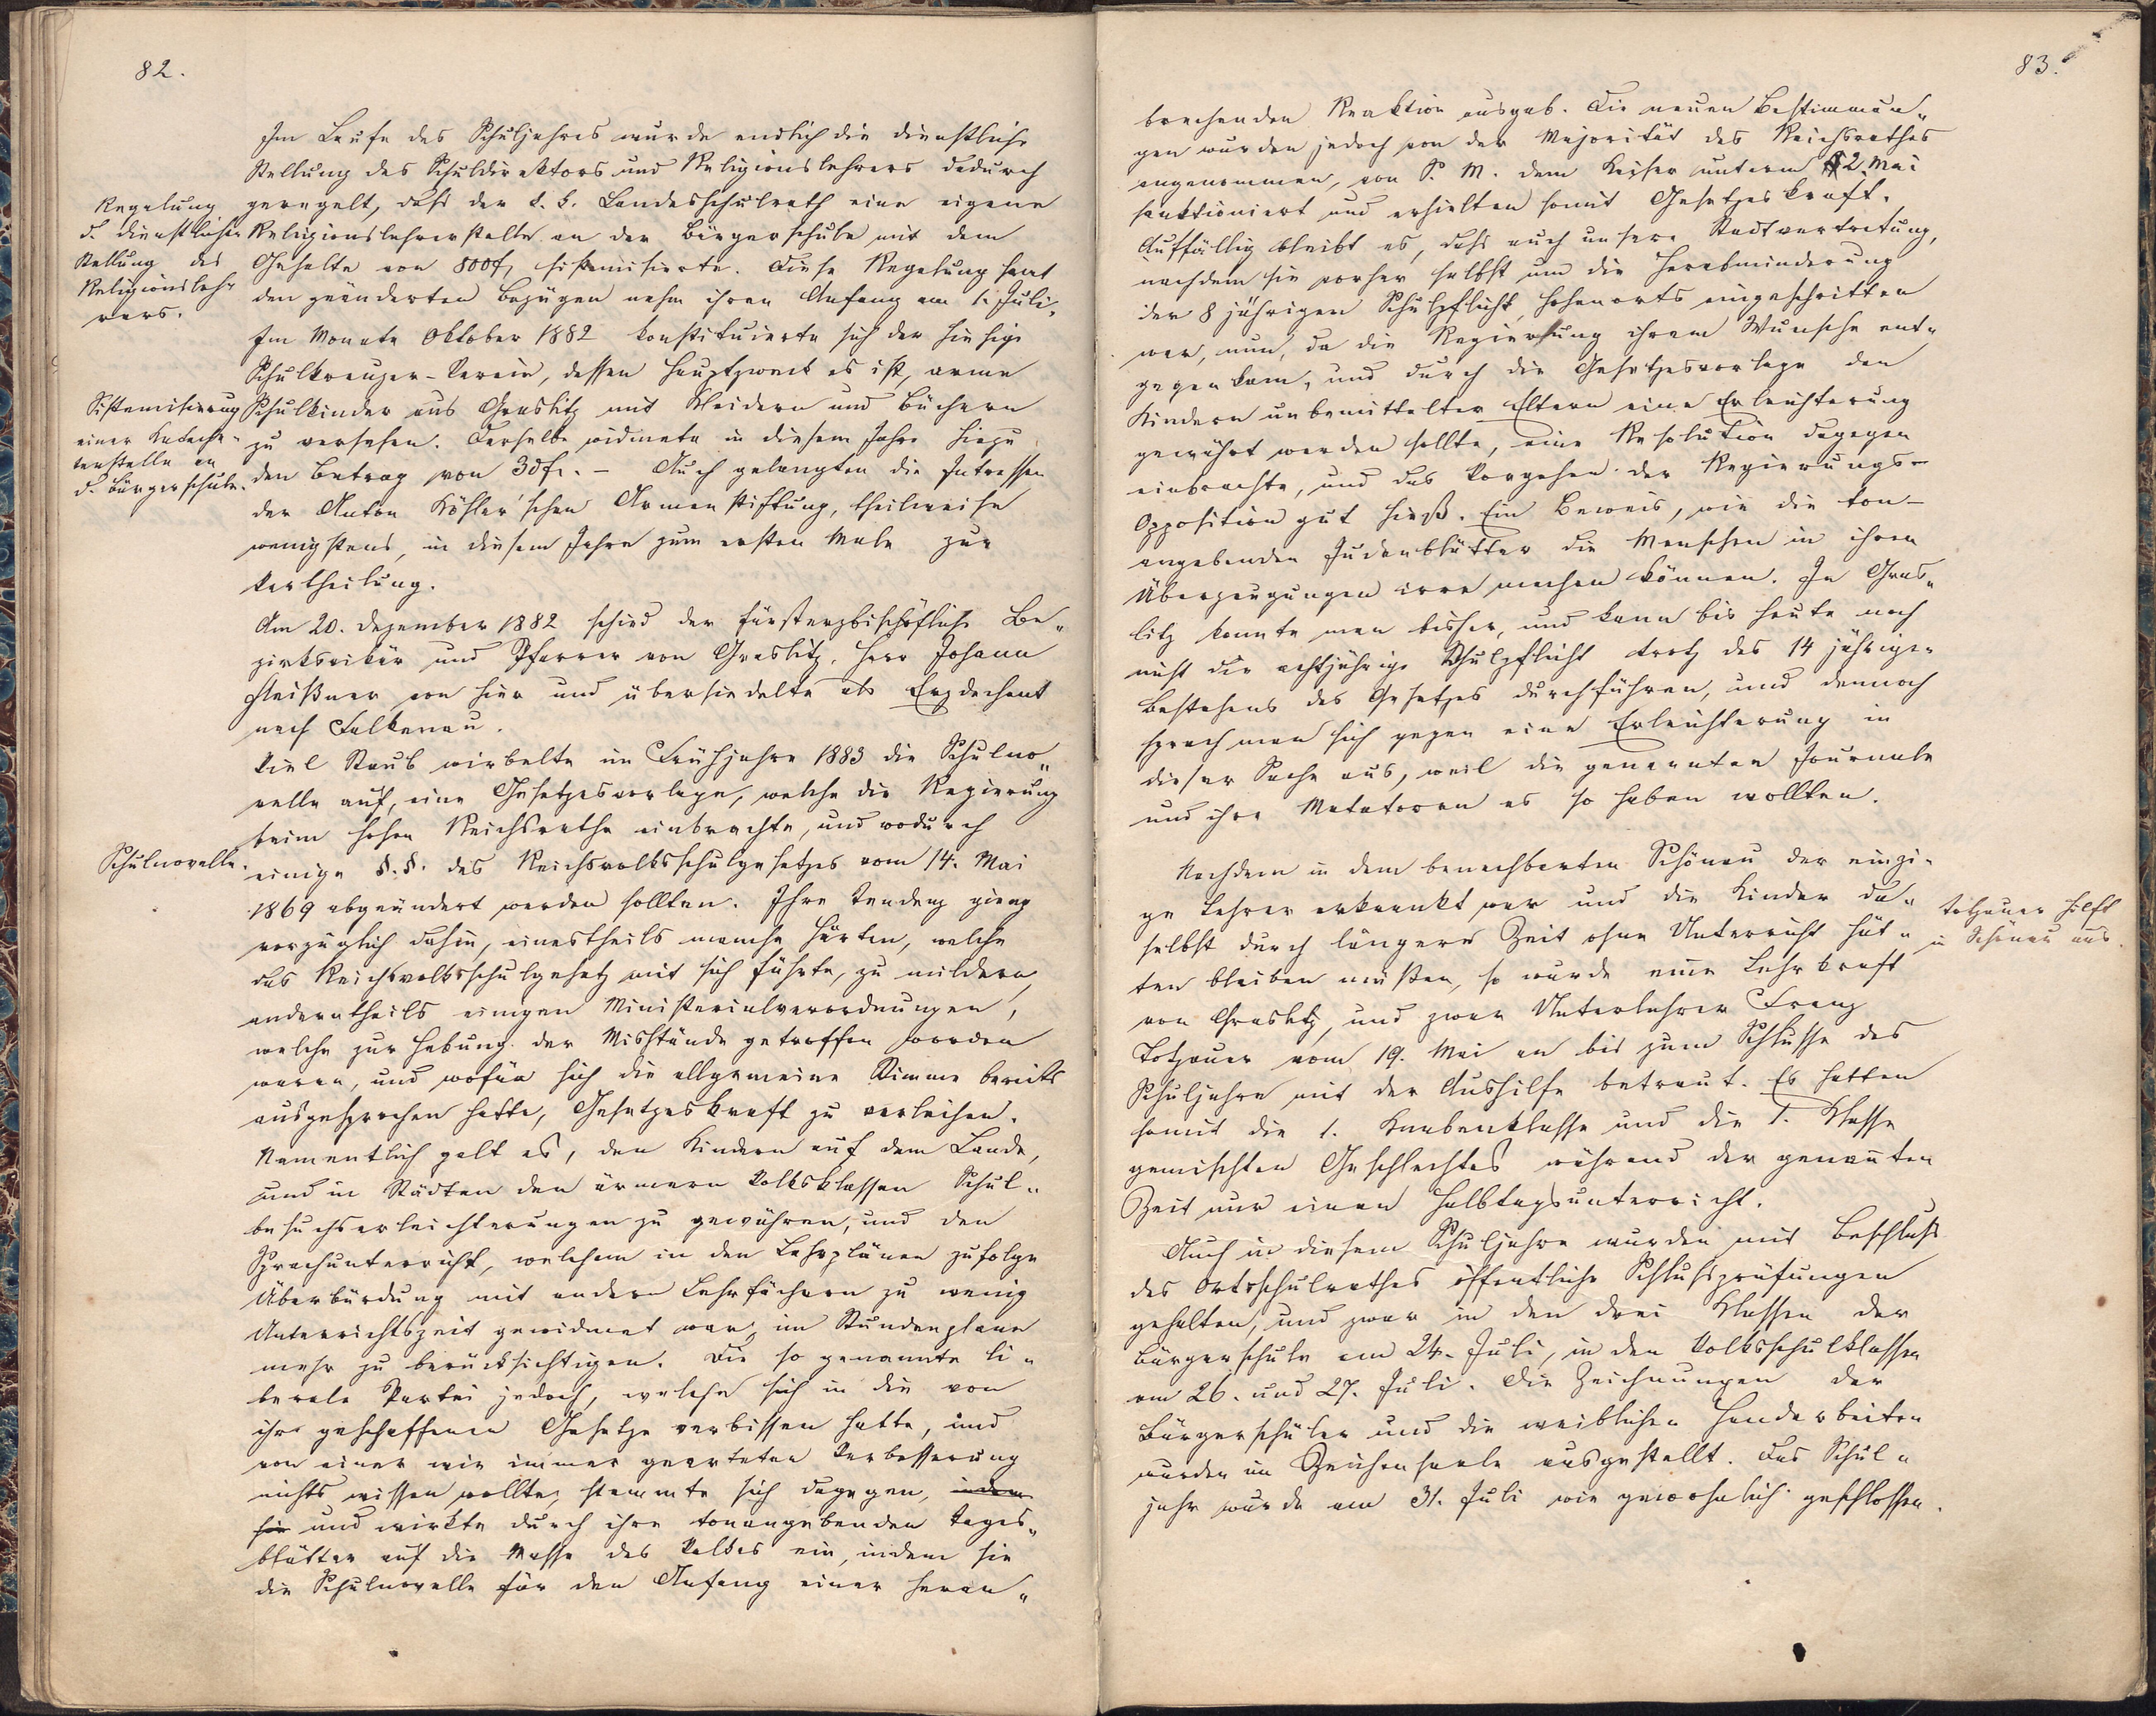 82.
Im Laufe des Schuljahres wurde endlich die dienstliche
Stellung des Schuldirektors und Religionslehrers dadurch
geregelt, dass der k. k. Landesschulrath eine eigene
Religionslehrerstelle an der Bürgerschule mit dem
Gehalte von 800 f. sistemisierte. Diese Regelung samt
den geänderten Bezügen nahm ihren Anfang am 1. Juli.
Regelung
d. dienstlichen
Stellung des
Religionsleh-
rers.
Im Monate Oktober 1882 konstituierte sich der hiesige
Schulkreuzer-Verein, dessen Hauptzweck es ist, arme
Schulkinder aus Graslitz mit Kleidern und Büchern
zu versehen. Derselbe widmete in diesem Jahre hiezu
den Betrag von 30 fr. – Auch gelangten die Intressen
der Anton Köhler'schen Armenstiftung, theilweise
wenigstens, in diesem Jahre zum ersten Male zur
Vertheilung.
Sistemisierung
einer Kateche-
tenstelle an
d. Bürgerschule.
Am 20. Dezember 1882 schied der fürsterzbischöfliche Be„
zirksvikär und Pfarrer von Graslitz, Herr Johann
Fleißner von hier und übersiedelte als Erzdechant
nach Falkenau.
Viel Staub wirbelte im Frühjahre 1883 die Schulno„
velle auf, eine Gesetzesvorlage, welche die Regierung
beim hohen Reichsrathe einbrachte, und wodurch
einige §.§. des Reichsvolksschulgesetzes vom 14. Mai
1869 abgeändert werden sollten. Ihre Tendenz gieng
vorzüglich dahin, einestheils manche Härten, welche
das Reichsvolksschulgesetz mit sich führte, zu mildern,
anderntheils einigen Ministerialverordnungen,
welche zur Hebung der Misstände getroffen worden
waren, und wofür sich die allgemeine Stimme bereits
ausgesprochen hatte, Gesetzeskraft zu verleihen.
Namentlich galt es, den Kindern auf dem Lande,
und in Städten den ärmern Volksklassen Schul„
besuchserleichterungen zu gewähren, und den
Sprachunterricht, welchem in den Lehrplänen zufolge
Überbürdung mit andern Lehrfächern zu wenig
Unterrichtszeit gewidmet war, im Stundenplane
mehr zu berücksichtigen. Die so genannte li„
berale Partei jedoch, welche sich in die von
ihr geschaffenen Gesetze verbissen hatte, und
von einer wie immer gearteten Verbesserung
nichts wissen wollte, stemmte sich dagegen, indem
sie und wirkte durch ihre tonangebenden Tages„
blätter auf die Masse des Volkes ein, indem sie
die Schulnovelle für den Anfang einer herein„
Schulnovelle.
83.
brechenden Reaktion ausgab. Die neuen Bestimmun„
gen wurden jedoch von der Majorität des Reichsrathes
angenommen, von S. M. dem Kaiser unterm 2. Mai
sanktioniert und erhielten somit Gesetzeskraft.
Auffällig bleibt es, dass auch unsere Stadtvertretung,
nachdem sie vorher selbst um die Herabminderung
der 8 jährigen Schulpflicht hohenorts eingeschritten
war, nun, da die Regierung ihrem Wunsche ent„
gegen kam, und durch die Gesetzesvorlage den
Kindern unbemittelter Eltern eine Erleichterung
gewährt werden sollte, eine Resolution dagegen
einbrachte, und das Vorgehen der Regierungs-
Opposition gut hieß. Ein Beweis, wie die ton-
angebenden Judenblätter die Menschen in ihren
Überzeugungen irre machen können. In Gras„
litz konnte man bisher, und kann bis heute noch
nicht die achtjährige Schulpflicht trotz des 14 jährigen
Bestehens des Gesetzes durchführen, und dennoch
sprach man sich gegen eine Erleichterung in
dieser Sache aus, weil die genannten Journale
und ihre Matatoren es so haben wollten.
Nachdem in dem benachbarten Schönau der einzi-
ge Lehrer erkrankt war und die Kinder da„
selbst durch längere Zeit ohne Unterricht hät„
ten bleiben müßen, so wurde eine Lehrkraft
von Graslitz, und zwar Unterlehrer Franz
Totzauer vom 19. Mai an bis zum Schlusse des
Schuljahrs mit der Aushilfe betraut. Es hatten
somit die 1. Knabenklasse und die 1. Klasse
gemischten Geschlechtes während der genannten
Zeit nur einen Halbtagsunterricht.
Totzauer hilft
in Schönau aus.
Auch in diesem Schuljahre wurden mit Beschluss
des Ortsschulrathes öffentliche Schlussprüfungen
gehalten, und zwar in den drei Klassen der
Bürgerschule am 24. Juli, in den Volksschulklassen
am 26. und 27. Juli. Die Zeichnungen der
Bürgerschüler und die weiblichen Handarbeiten
wurden im Zeichensaale ausgestellt. Das Schul„
jahr wurde am 31. Juli wie gewöhnlich geschlossen.